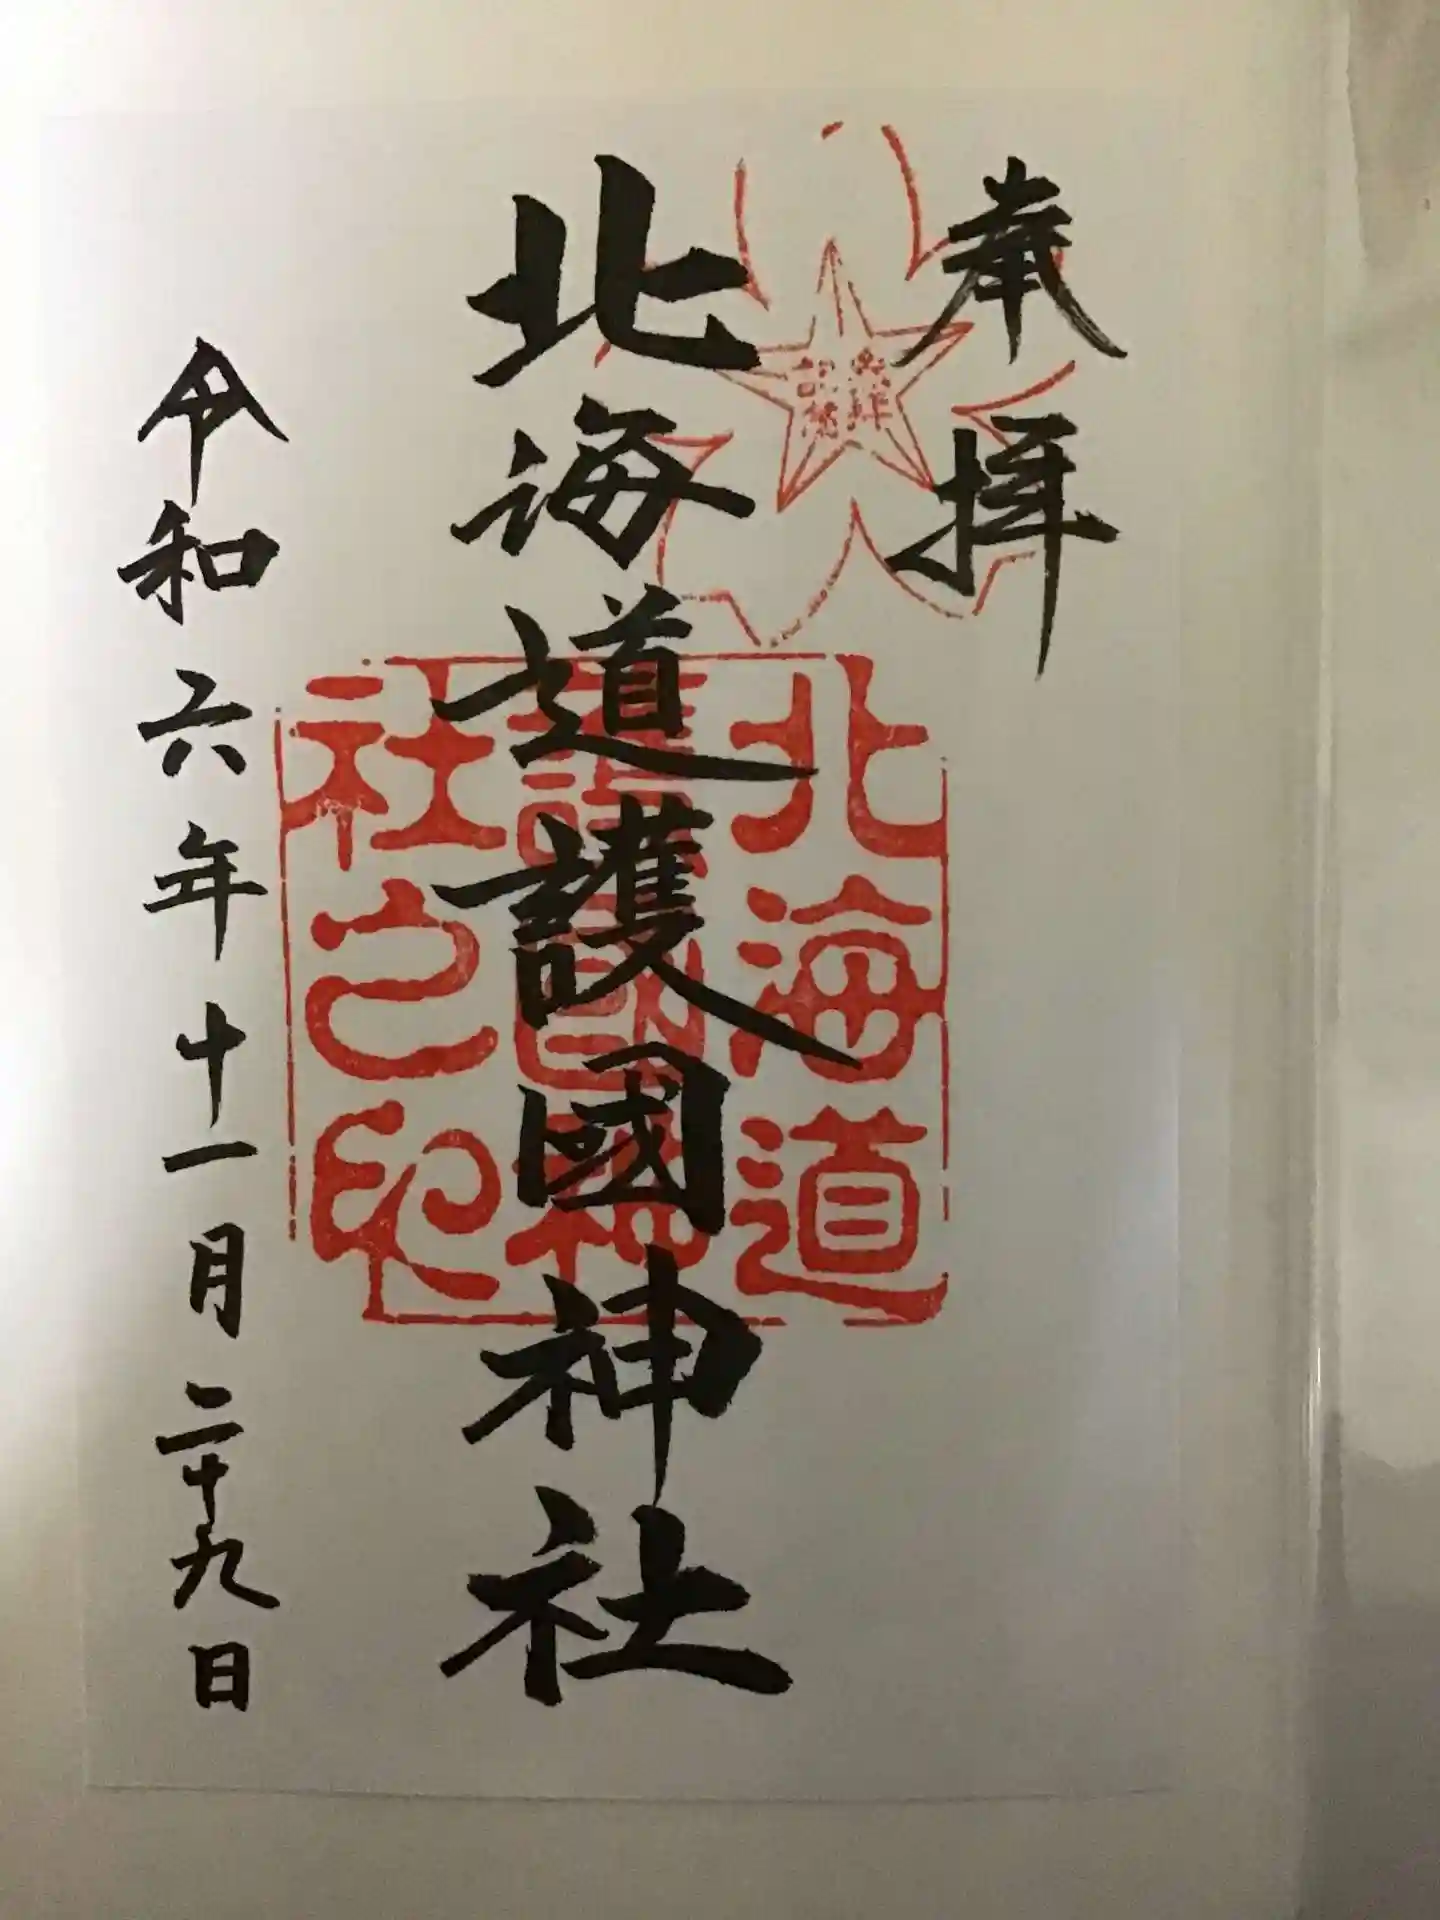 奉拝
参拝
記念
北海道護國神社
北海道
護國神
社之印
令和六年十一月二十九日